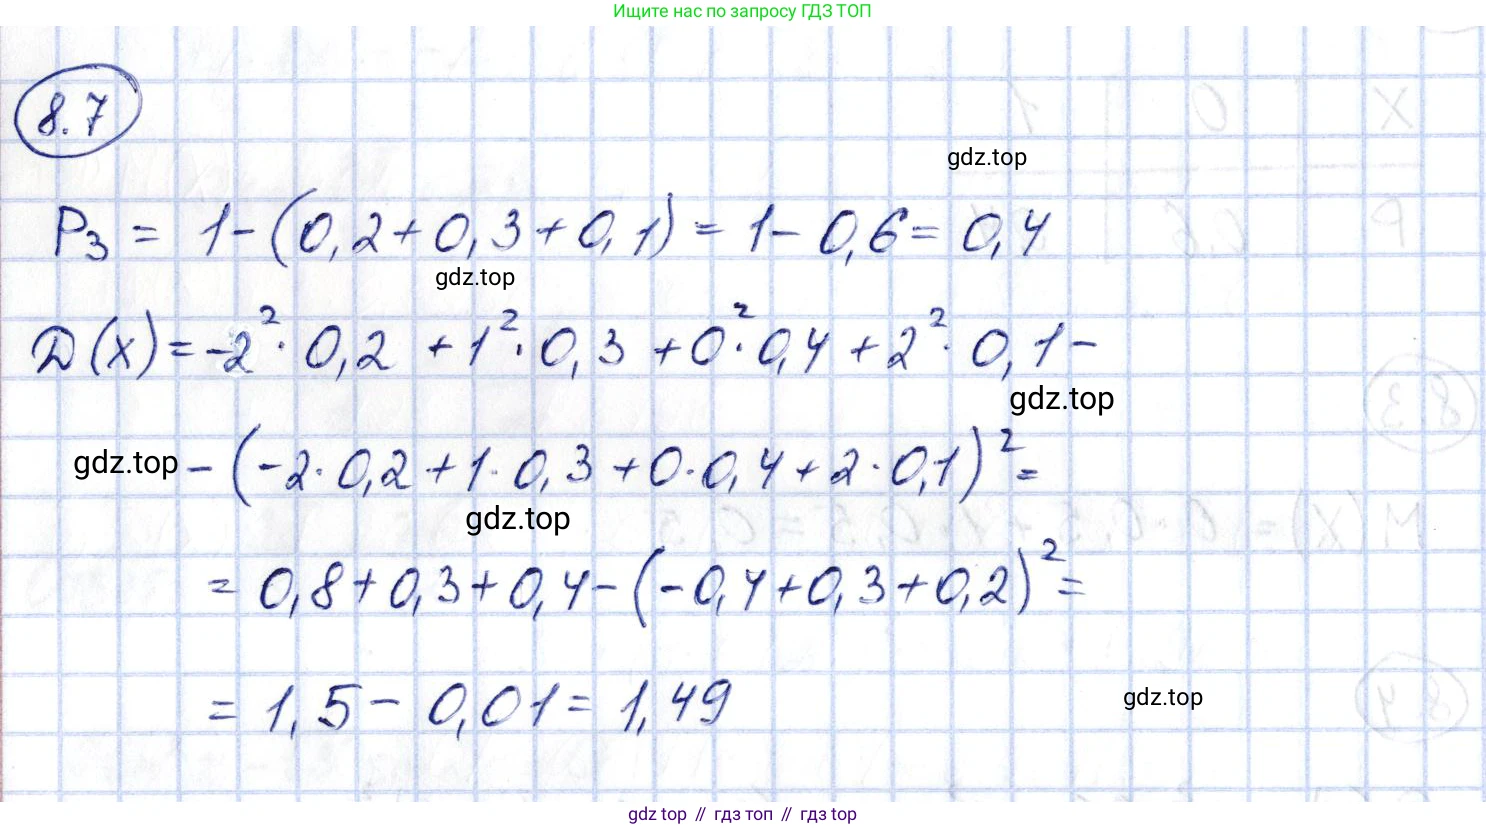 Ищите нас по запросу ГДЗ ТОП
8.7
gdz.top
P₃ = 1-(0,2+0,3+0,1) = 1-0,6 = 0,4
gdz.top
D(X) = -2²·0,2 + 1²·0,3 + 0²·0,4 + 2²·0,1 -
gdz.top
gdz.top - (-2·0,2+1·0,3+0·0,4+2·0,1)² =
gdz.top
= 0,8+0,3+0,4-(-0,4+0,3+0,2)² =
= 1,5 - 0,01 = 1,49
gdz.top
gdz.top // гдз топ // гдз top